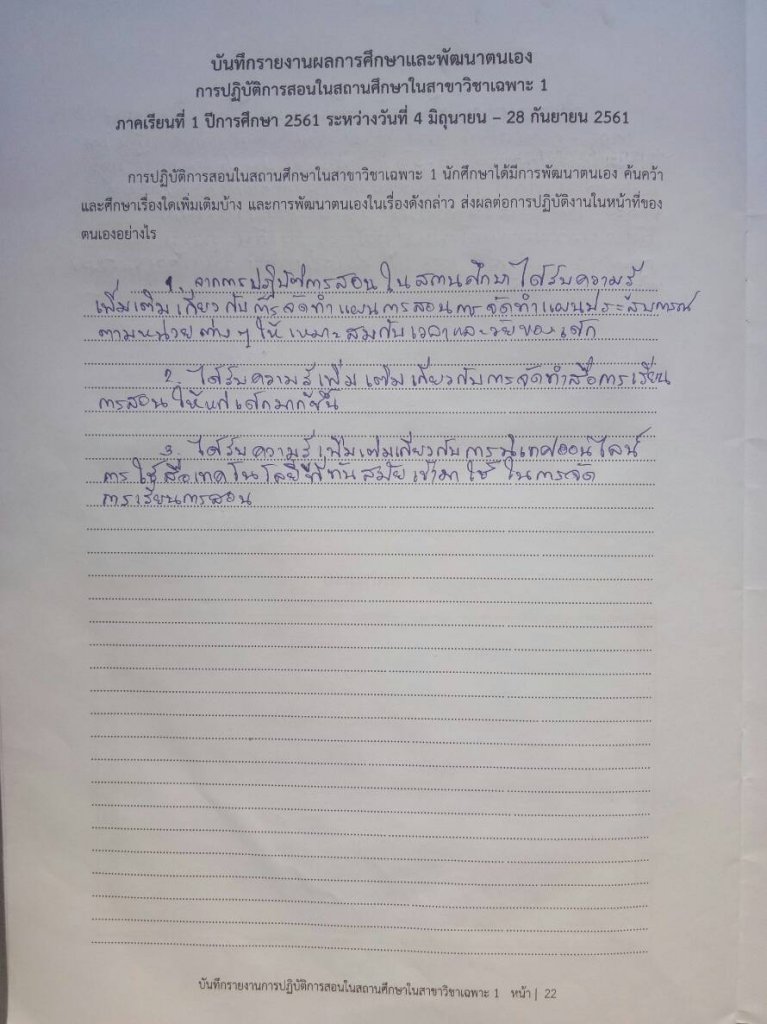 บันทึกรายงานผลการศึกษาและพัฒนาตนเอง
การปฏิบัติการสอนในสถานศึกษาในสาขาวิชาเฉพาะ 1
ภาคเรียนที่ 1 ปีการศึกษา 2561 ระหว่างวันที่ 4 มิถุนายน – 28 กันยายน 2561
การปฏิบัติการสอนในสถานศึกษาในสาขาวิชาเฉพาะ 1 นักศึกษาได้มีการพัฒนาตนเอง ค้นคว้า
และศึกษาเรื่องใดเพิ่มเติมบ้าง และการพัฒนาตนเองในเรื่องดังกล่าว ส่งผลต่อการปฏิบัติงานในหน้าที่ของ
ตนเองอย่างไร
1. จากการปฏิบัติการสอนในสถานศึกษา ได้รับความรู้
เพิ่มเติมเกี่ยวกับการจัดทำแผนการสอนการจัดทำแผนประสบการณ์
ตามหน่วยต่างๆ ให้เหมาะสมกับเวลาและวัยของเด็ก
2. ได้รับความรู้เพิ่มเติมเกี่ยวกับการจัดทำสื่อการเรียน
การสอนให้แก่เด็กมากขึ้น
3. ได้รับความรู้เพิ่มเติมเกี่ยวกับการนิเทศออนไลน์
การใช้สื่อเทคโนโลยีที่ทันสมัยเข้ามาใช้ในการจัด
การเรียนการสอน
บันทึกรายงานการปฏิบัติการสอนในสถานศึกษาในสาขาวิชาเฉพาะ 1 หน้า | 22